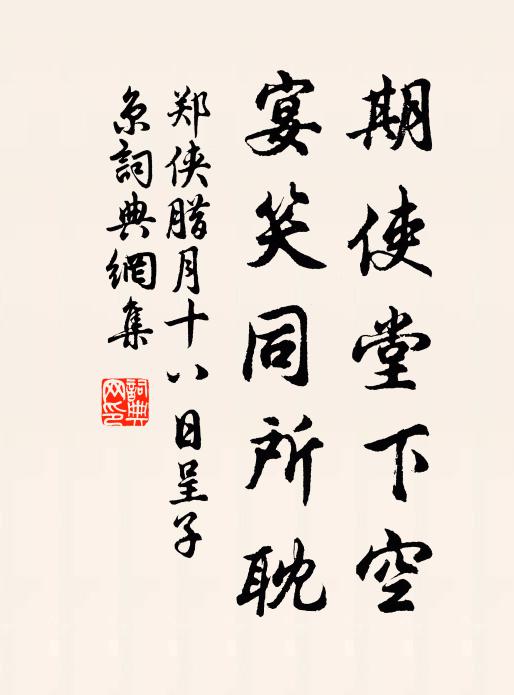 期使堂下空
宴笑同所耽
郑侠腊月十八日呈子
京詞典網集
詞典网印